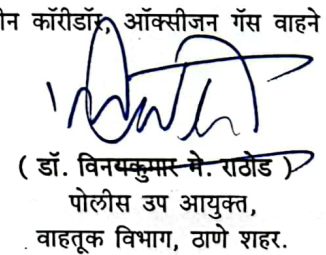 ीन कॉरीडॉर, ऑक्सीजन गॅस वाहने
( डॉ. विनयकुमार मे. राठोड )
पोलीस उप आयुक्त,
वाहतूक विभाग, ठाणे शहर.